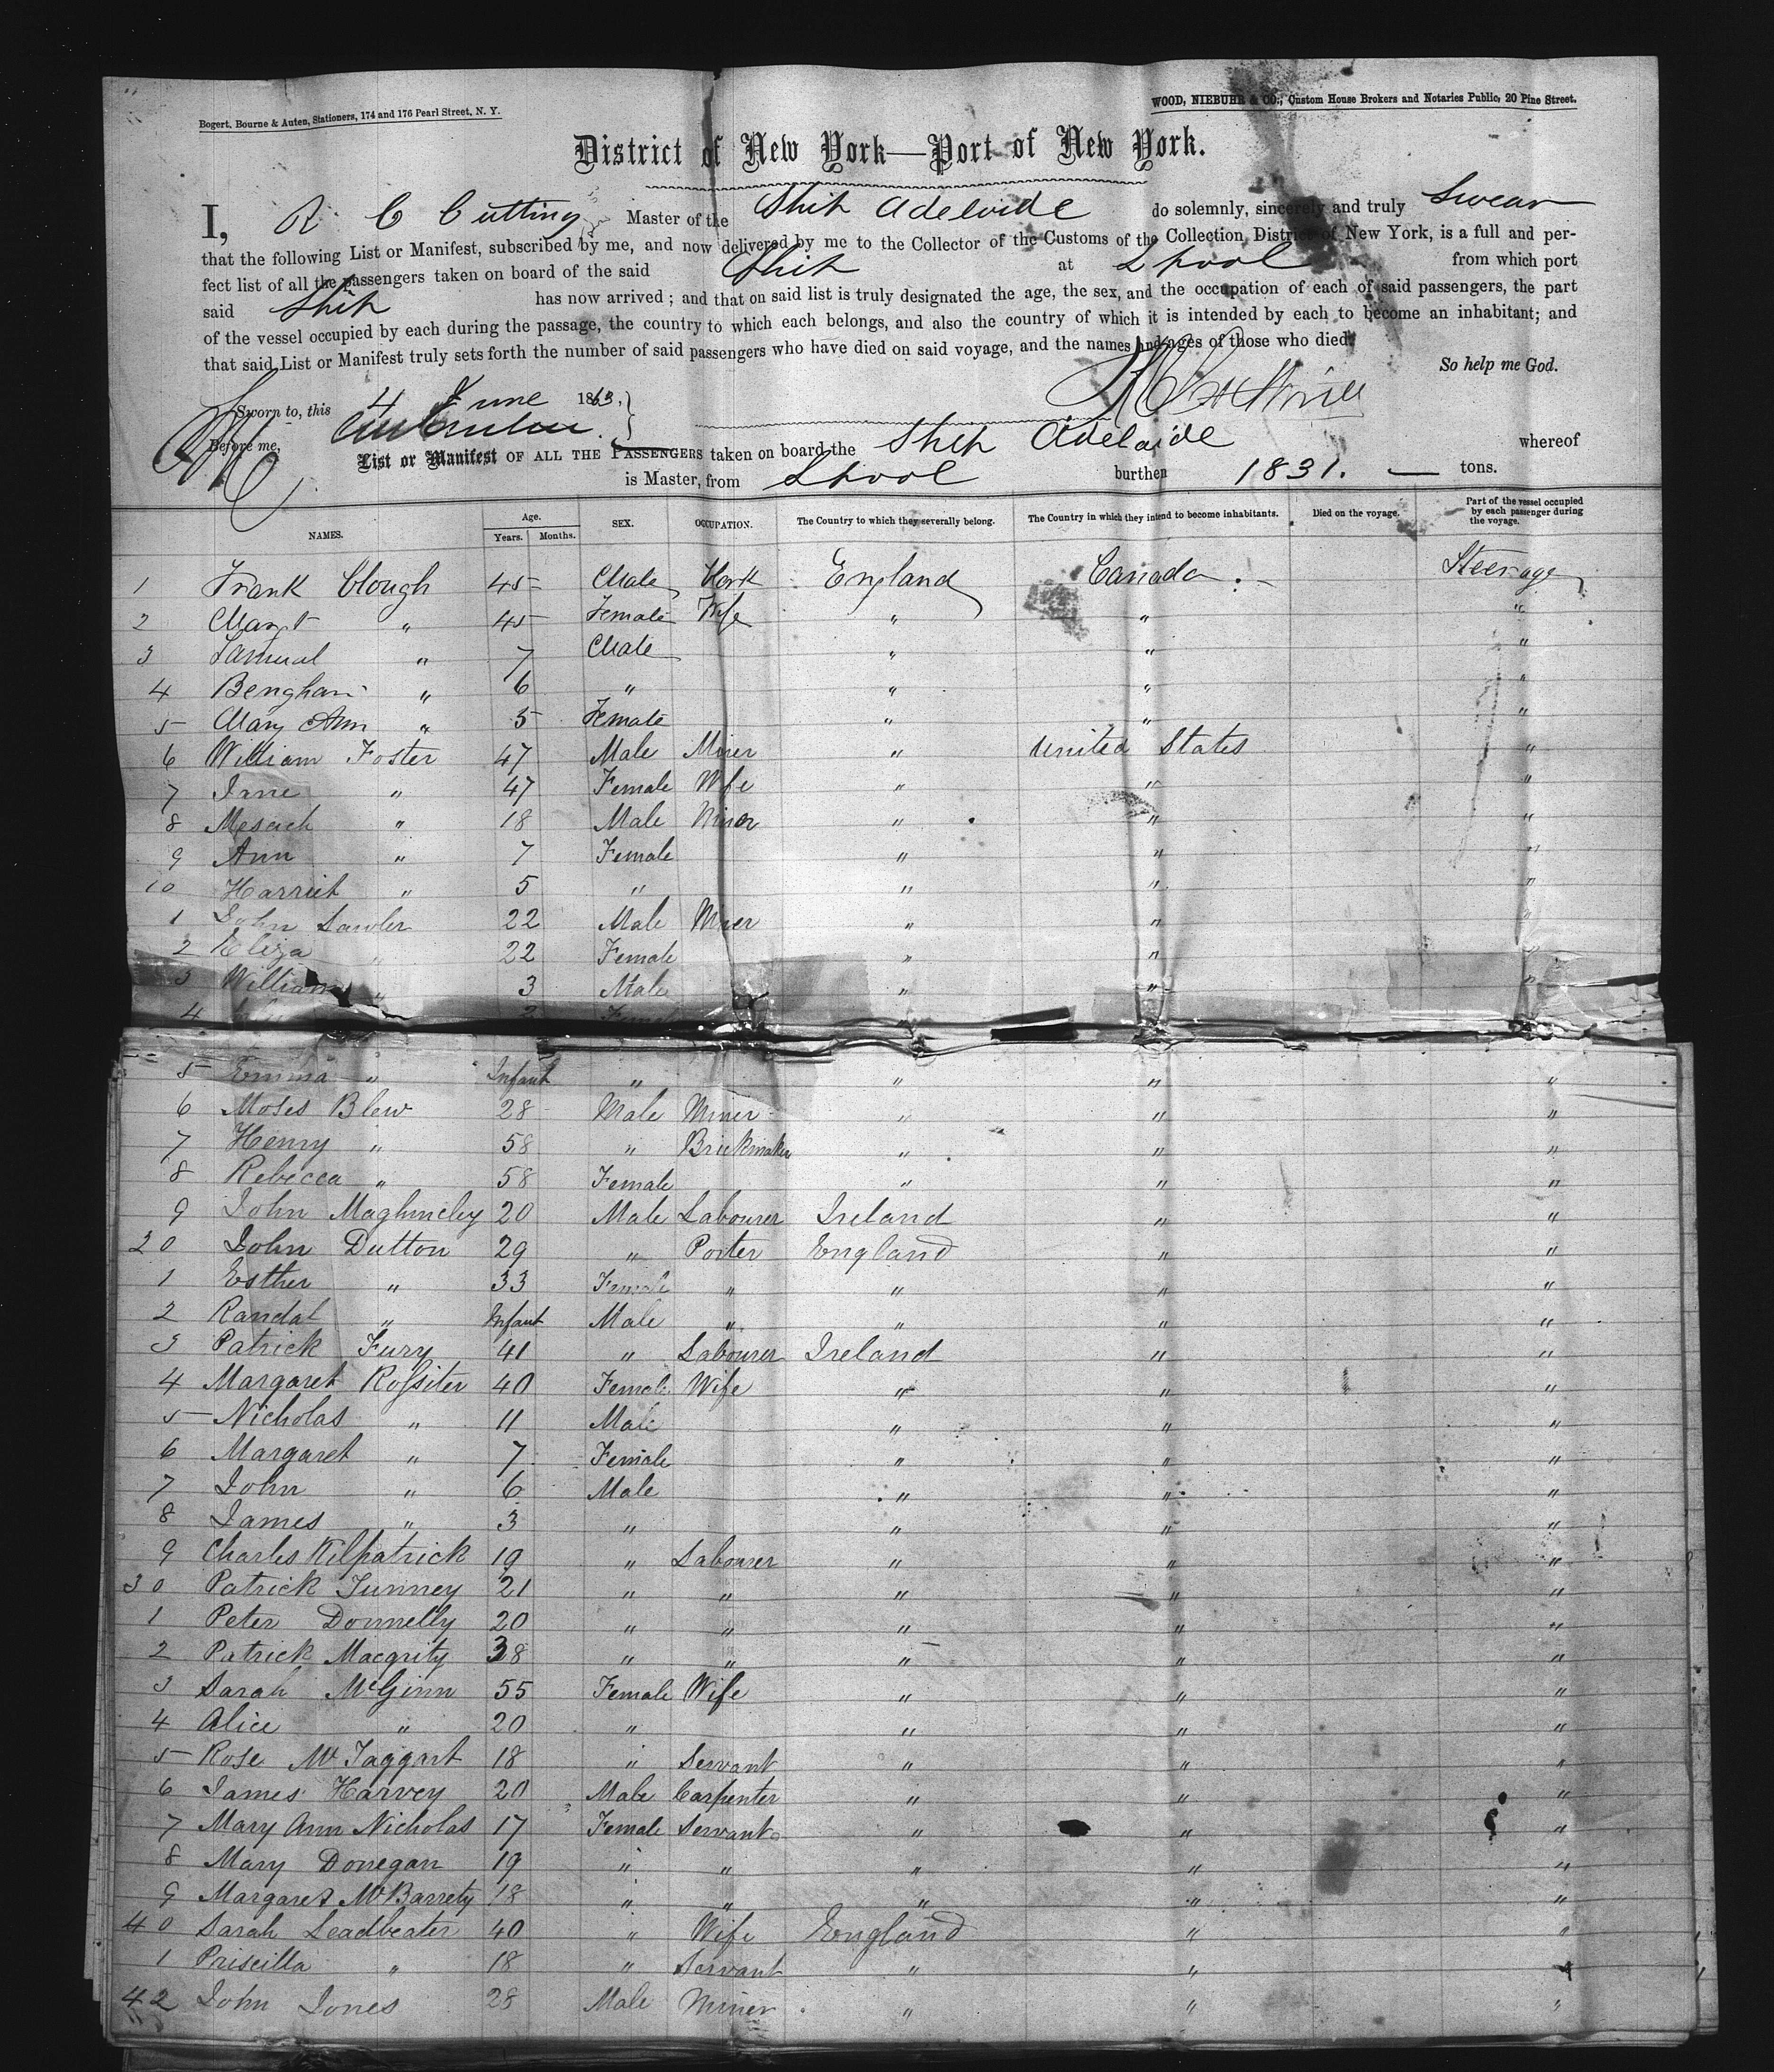 Bogert, Bourne & Auten, Stationers, 174 and 176 Pearl Street, N. Y.
WOOD, NIEBUHR & CO., Custom House Brokers and Notaries Public, 20 Pine Street.
District of New York—Port of New York.
I, R C Cutting Master of the Ship Adelaide do solemnly, sincerely and truly Swear
that the following List or Manifest, subscribed by me, and now delivered by me to the Collector of the Customs of the Collection District of New York, is a full and per-
fect list of all the passengers taken on board of the said Ship at Lpool from which port
said Ship has now arrived; and that on said list is truly designated the age, the sex, and the occupation of each of said passengers, the part
of the vessel occupied by each during the passage, the country to which each belongs, and also the country of which it is intended by each to become an inhabitant; and
that said List or Manifest truly sets forth the number of said passengers who have died on said voyage, and the names and ages of those who died.
So help me God.
Sworn to, this 4 June 1863,
Before me,
List or Manifest OF ALL THE PASSENGERS taken on board the Ship Adelaide whereof
is Master, from Lpool burthen 1831. — tons.
NAMES. Age. Years. Months. SEX. OCCUPATION. The Country to which they severally belong. The Country in which they intend to become inhabitants. Died on the voyage. Part of the vessel occupied by each passenger during the voyage.
1 Frank Clough 45 Male England Canada Steerage
2 Margt " 45 Female Wife " " "
3 Samual " 7 Male " " "
4 " 6 " " " "
5 Mary Ann " 5 Female " " "
6 William Foster 47 Male Miner " United States "
7 Jane " 47 Female Wife " " "
8 Mesach " 18 Male Miner " " "
9 Ann " 7 Female " " "
10 Harriet " 5 " " " "
1 John Lawler 22 Male Miner " " "
2 Eliza " 22 Female " " "
3 William " 3 Male " " "
4 2 Female
5 Emma " Infant " " " "
6 Moses Blew 28 Male Miner " " "
7 Henry " 58 " Brickmaker " " "
8 Rebecca " 58 Female " " "
9 John Maghincley 20 Male Labourer Ireland " "
20 John Dutton 29 " Porter England " "
1 Esther " 33 Female " " " "
2 Randal " Infant Male " " " "
3 Patrick Fury 41 " Labourer Ireland " "
4 Margaret Roſsiter 40 Female Wife " " "
5 Nicholas " 11 Male " " "
6 Margaret " 7 Female " " "
7 John " 6 Male " " "
8 James " 3 " " " "
9 Charles Kilpatrick 19 " Labourer " " "
30 Patrick Tunney 21 " " " " "
1 Peter Donnelly 20 " " " " "
2 Patrick Macgrity 38 " " " " "
3 Sarah McGinn 55 Female Wife " " "
4 Alice " 20 " " " "
5 Rose McTaggart 18 " Servant " " "
6 James Harvey 20 Male Carpenter " " "
7 Mary Ann Nicholas 17 Female Servant " " "
8 Mary Donegan 19 " " " " "
9 Margaret McBarrety 18 " " " " "
40 Sarah Leadbeater 40 " Wife England " "
1 Priscilla " 18 " Servant " " "
42 John Jones 28 Male Miner " " "